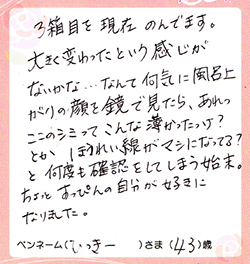 3箱目を現在のんでます。
大きく変わったという感じが
ないかな…なんて何気に風呂上
がりの顔を鏡で見たら、あれっ
ここのシミってこんな薄かったっけ?
とか ほうれい線がマシになってる?
と何度も確認をしてしまう始末。
ちょっとすっぴんの自分が好きに
なりました。
ペンネーム(いっきー)さま(43)歳